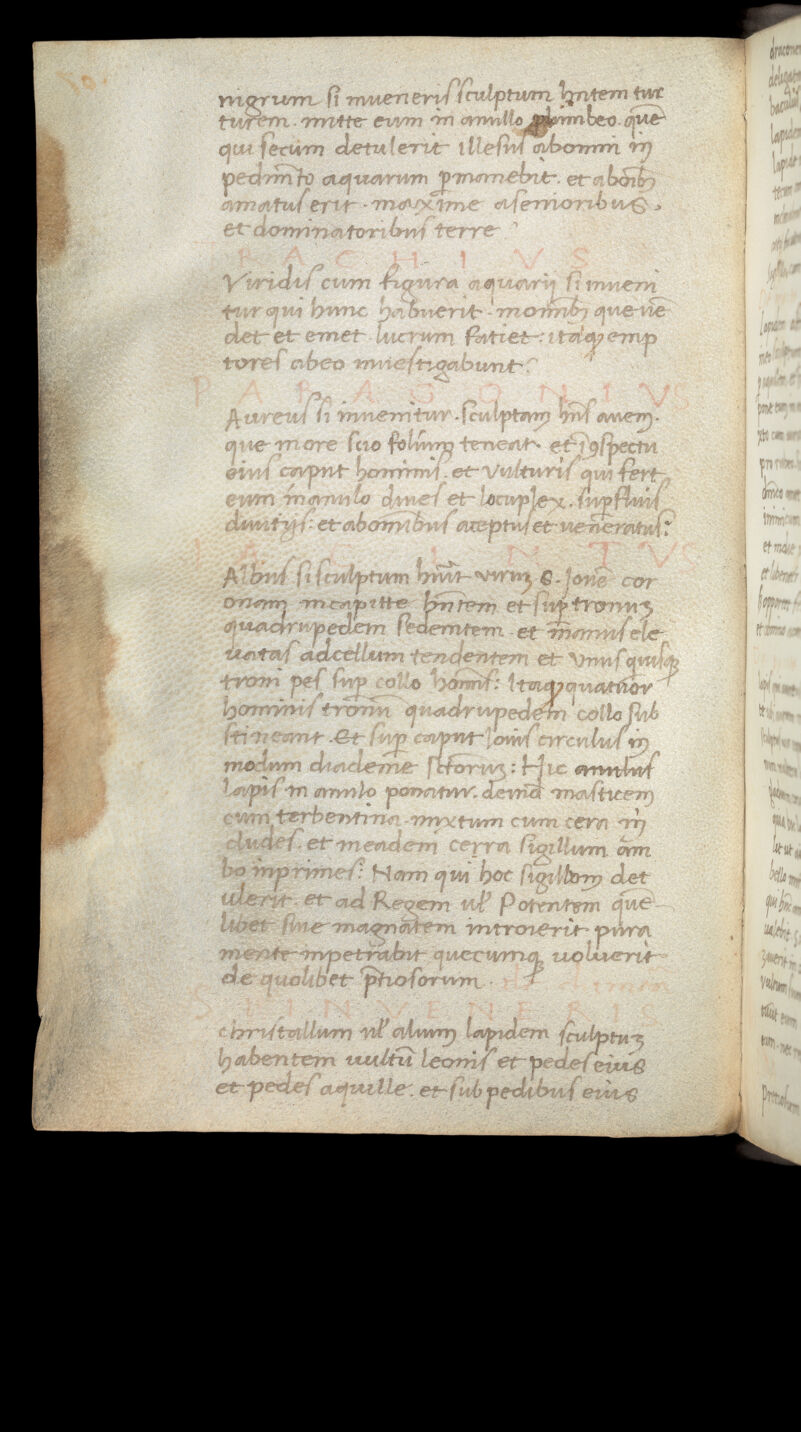 nigrum si inueneris sculptum hn̄tem tur
turem. mitte eum in anullo plumbeo. quē
qui secum detulerit illesus abomni in
pedimn̄to aquarum p̄manebit. et ab oīb;
amatus erit. maxime asenioribus.
et dominatoribus terre
PACHIVS
Viridis cum figura aquarij si inueni
tur qui hunc habuerit. in omīb; que uē
det et emet lucrum fatiet: itaq; emp
tores abeo inuestigabunt:
PARAGONIVS
Aureus si inuenitur. sculptam hn̄s auem.
que more suo folium teneat. et ī ɔspectu
eius caput hominis. et vulturis qui fert
eum in anulo diues et locuplex. sup̄fluis
diuitijs: et abomībus aceptus et ueneratus:
IACINTVS
Albus si sculptum huīt viruȝ s. Jouē cor
onam incapitte hn̄tem et sup̄ tronuȝ
quadrupedem sedentem. et īmanus ele
uatas adcellum tendentem et vnusquisq;
troni pes sup̄ collo homīs: Itaq; quatuor
hominis tronū quadrupedem collo sub
stineant. Et sup̄ caput Jouis circulus in
modum diademe sc̄toruȝ: Hic anulus
lapis in anulo ponatur. deinā masticem
cum terbentina. mixtum cum cera in
cludes. et in eadem cerra sigillum am
bo inprimes: Nam qui hoc sigillom det
ulerit. et ad Regem ul' Potentem quē
libet siue magnatem introierit pura
mente inpetrabit quecumq; uoluerit
de quolibet p̄tiosorum
SI INVENERIS
christallum ul' alium lapidem sculptuȝ
habentem uultū leonis et pedes eius
et pedes aquille. et sub pedibus eius